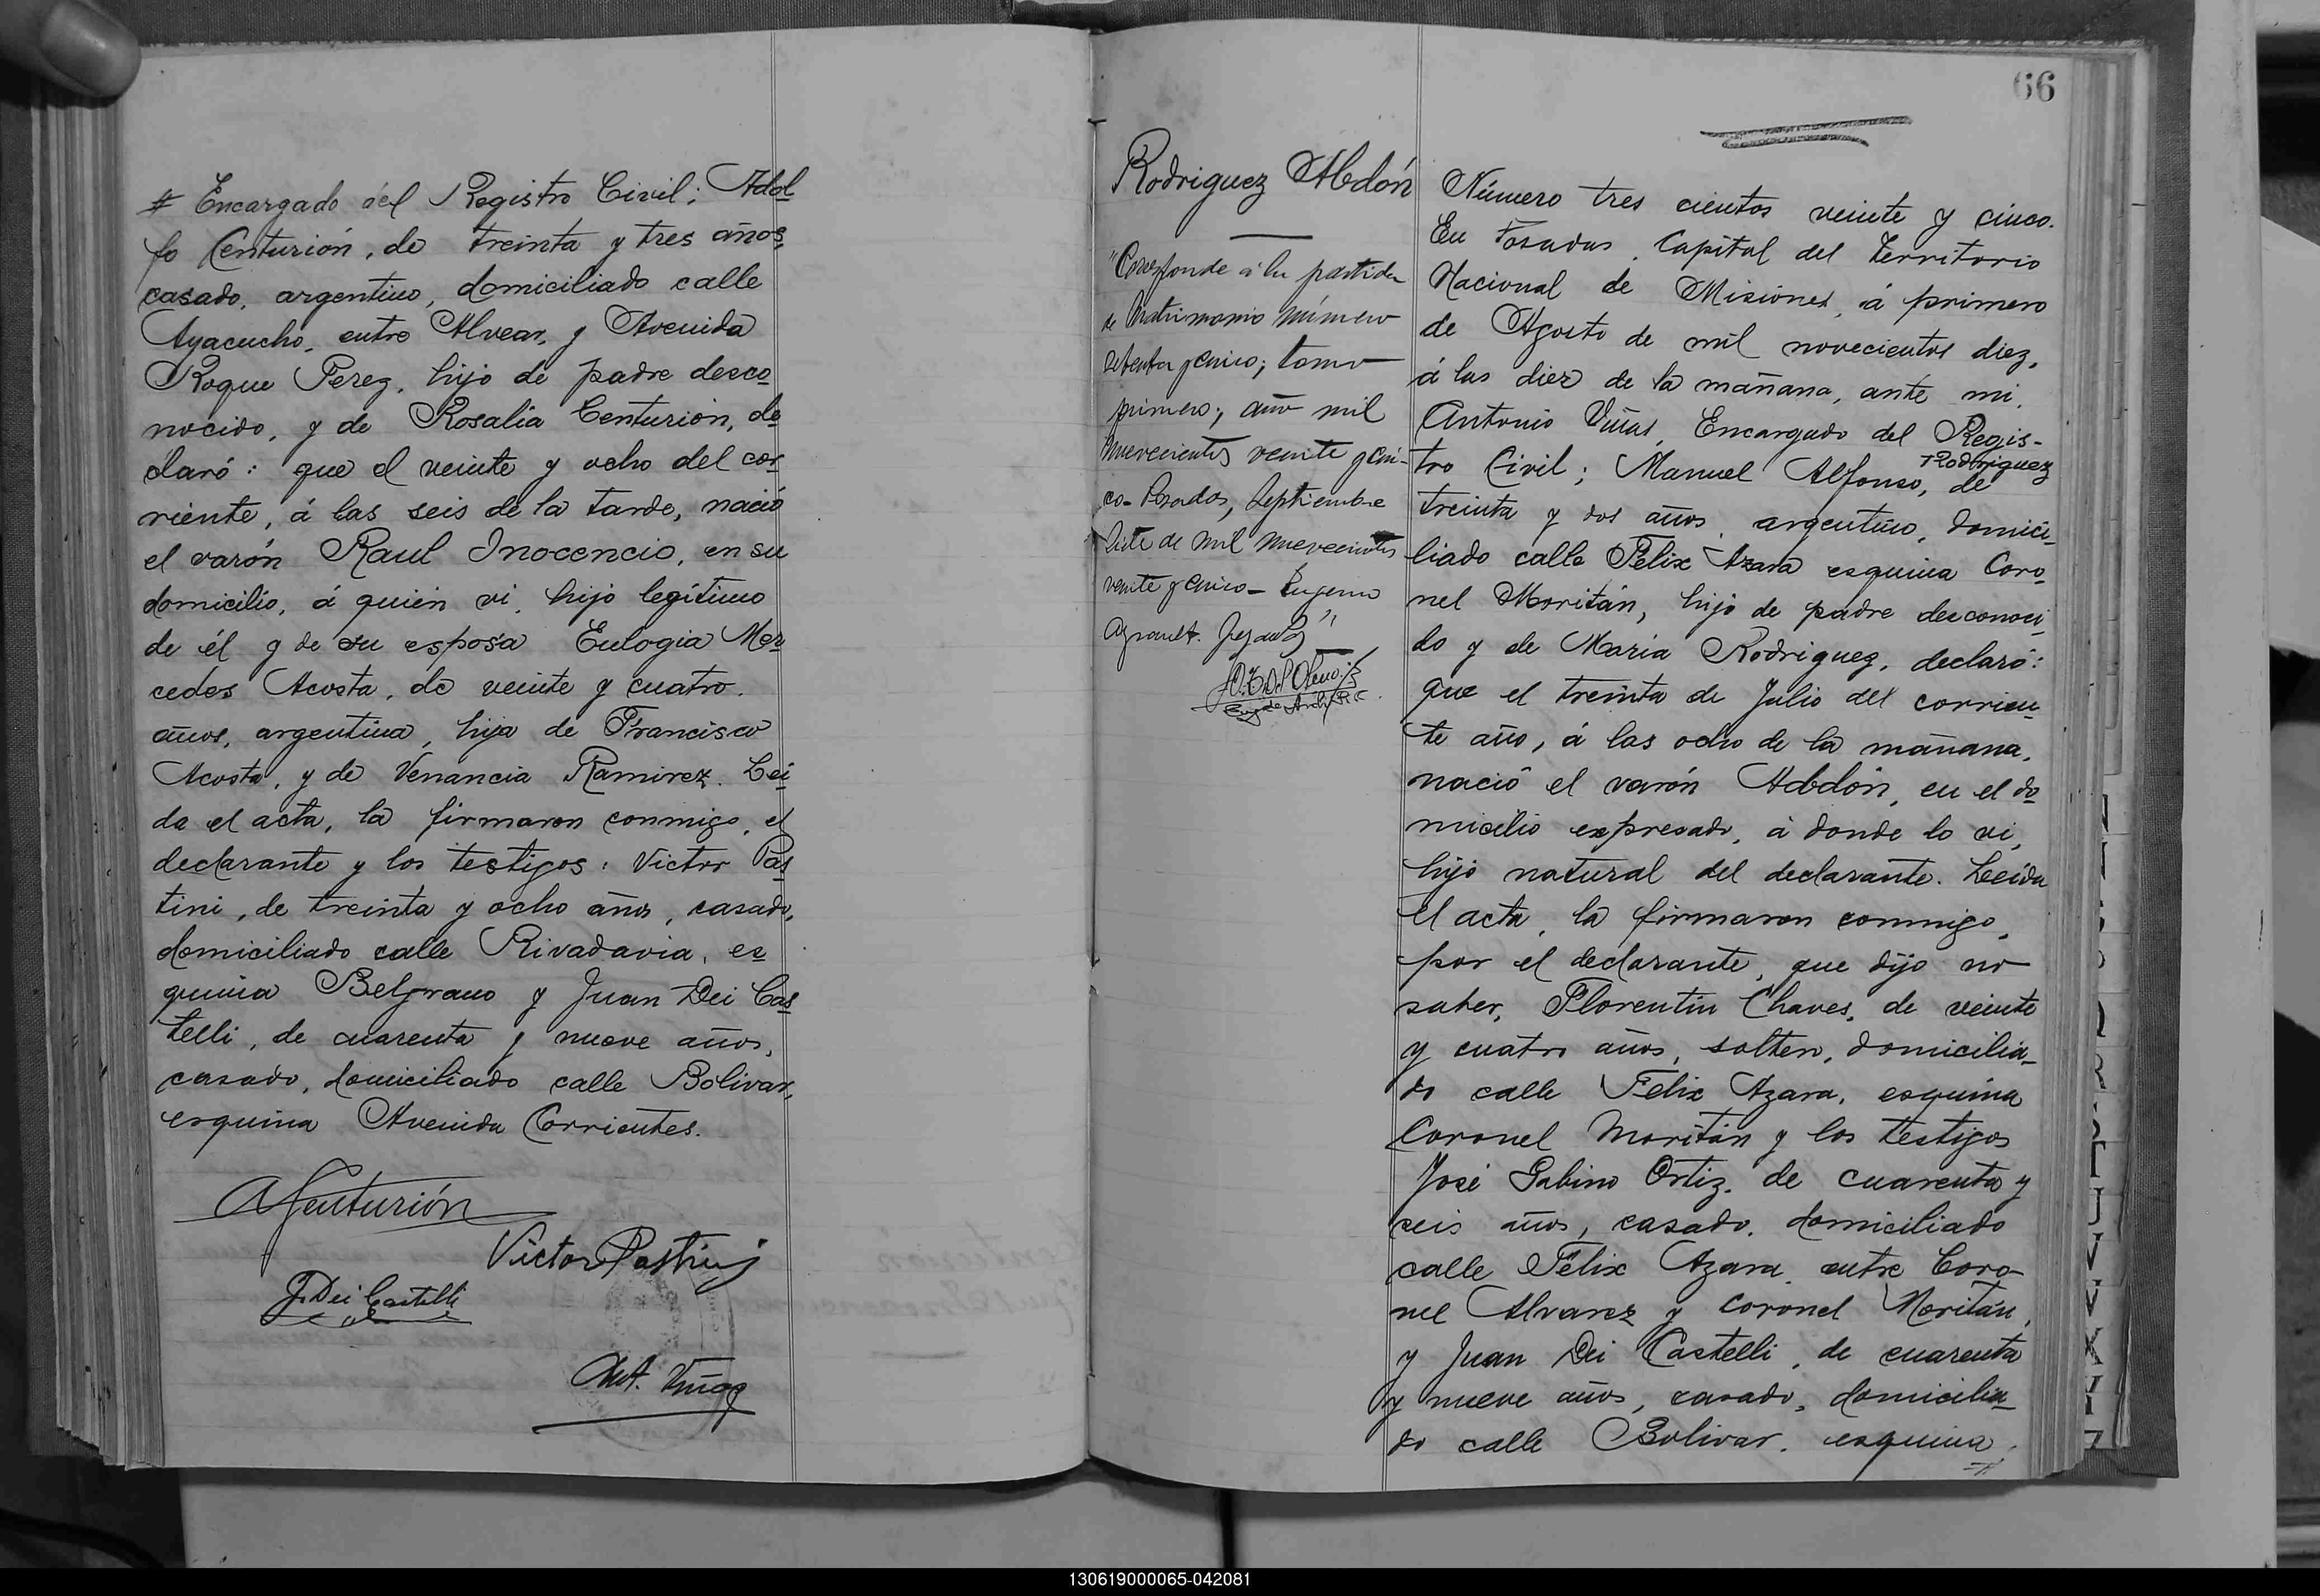 # Encargado del Registro Civil; Adol
fo Centurión, de treinta y tres años,
casado, argentino, domiciliado calle
Ayacucho, entre Alvear, y Avenida
Roque Perez, hijo de padre desco
nocido, y de Rosalia Centurión, de
claró: que el veinte y ocho del cor
riente, á las seis de la tarde, nació
el varón Raul Inocencio, en su
domicilio, á quién vi, hijo legítimo
de él y de su esposa Eulogia Mer
cedes Acosta, de veinte y cuatro
años, argentina, hija de Francisco
Acosta, y de Venancia Ramirez. Lei
da el acta, la firmaron conmigo, el
declarante y los testigos: Victor Pas
tini, de treinta y ocho años, casado,
domiciliado calle Rivadavia, es
quina Belgrano y Juan Dei Cas
telli, de cuarenta y nueve años,
casado, domiciliado calle Bolivar,
esquina Avenida Corrientes.
A Centurión
Victor Pastini
J. Dei Castelli
Ant. Viñas
66
Rodriguez Abdón
"Corresponde á la partida
de Matrimonio número
setenta y cinco; tomo
primero; año mil
nuevecientos veinte y cin-
co- Posadas, Septiembre
siete de mil nuevecientos
veinte y cinco- Eugenio
Número tres cientos veinte y cinco.
En Posadas, Capital del Territorio
Nacional de Misiones, á primero
de Agosto de mil novecientos diez,
á las diez de la mañana, ante mi,
Antonio Viñas, Encargado del Regis-
tro Civil; Manuel Alfonso, Rodriguez de
treinta y dos años, argentino, domici-
liado calle Felix Azara esquina Coro
nel Moritán, hijo de padre desconoci
do y de Maria Rodriguez, declaró:
que el treinta de Julio del corrien
te año, á las ocho de la mañana,
nació el varón Abdón, en el do
micilio expresado, á donde lo vi,
hijo natural del declarante. Leída
el acta, la firmaron conmigo,
por el declarante, que dijo no
saber, Florentin Chaves, de veinte
y cuatro años, soltero, domicilia-
do calle Felix Azara, esquina
Coronel Moritán y los testigos
José Gabino Ortiz, de cuarenta y
seis años, casado, domiciliado
calle Félix Azara, entre Coro
nel Alvarez y Coronel Moritán,
y Juan Dei Castelli, de cuarenta
y nueve años, casado, domicilia-
do calle Bolivar, esquina
130619000065-042081